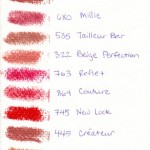 680 Millie
535 Tailleur Bar
322 Beige Perfection
763 Reflet
864 Couture
745 New Look
445 Créateur